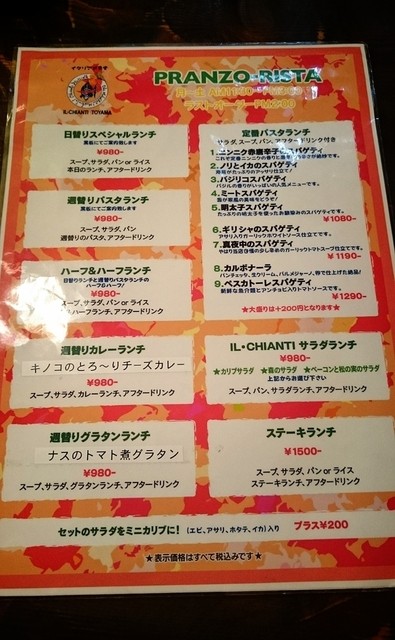 イタリア料理
IL・CHIANTI TOYAMA
PRANZO-RISTA
日替りスペシャルランチ
黒板にてご案内致します
¥980-
スープ、サラダ、パン or ライス
本日のランチ、アフタードリンク
週替りパスタランチ
黒板にてご案内致します
¥980-
スープ、サラダ、パン
週替りのパスタ、アフタードリンク
ハーフ&ハーフランチ
日替りランチと週替りパスタランチの
ハーフ&ハーフ!
¥980-
スープ、サラダ、パン or ライス
ハーフランチ、アフタードリンク
週替りカレーランチ
キノコのとろ〜りチーズカレー
¥980-
スープ、サラダ、カレーランチ、アフタードリンク
週替りグラタンランチ
ナスのトマト煮グラタン
¥980-
スープ、サラダ、グラタンランチ、アフタードリンク
定番パスタランチ
サラダ、スープ、パン、アフタードリンク付き
1.ニンニク赤唐辛子のスパゲティ
2.ノリとイカのスパゲティ
3.バジリコスパゲティ
4.ミートスパゲティ
5.明太子スパゲティ
¥1080-
6.ギリシャのスパゲティ
アサリ入りガーリックホワイトソース仕立てです。
7.真夜中のスパゲティ
¥1190-
8.カルボナーラ
パンチェッタ、生クリーム、パルメジャーノ、卵で仕上げた絶品!
9.ペスカトーレスパゲティ
新鮮な魚介類とアンチョビ入りトマトソースです。
¥1290-
★大盛りは+200円となります★
IL・CHIANTI サラダランチ
¥980-
★カリブサラダ ★森のサラダ ★ベーコンと松の実のサラダ
上記からお選び下さい
スープ、パン、サラダランチ、アフタードリンク
ステーキランチ
¥1500-
スープ、サラダ、パン or ライス
ステーキランチ、アフタードリンク
セットのサラダをミニカリブに! (エビ、アサリ、ホタテ、イカ)入り プラス¥200
★表示価格はすべて税込みです★